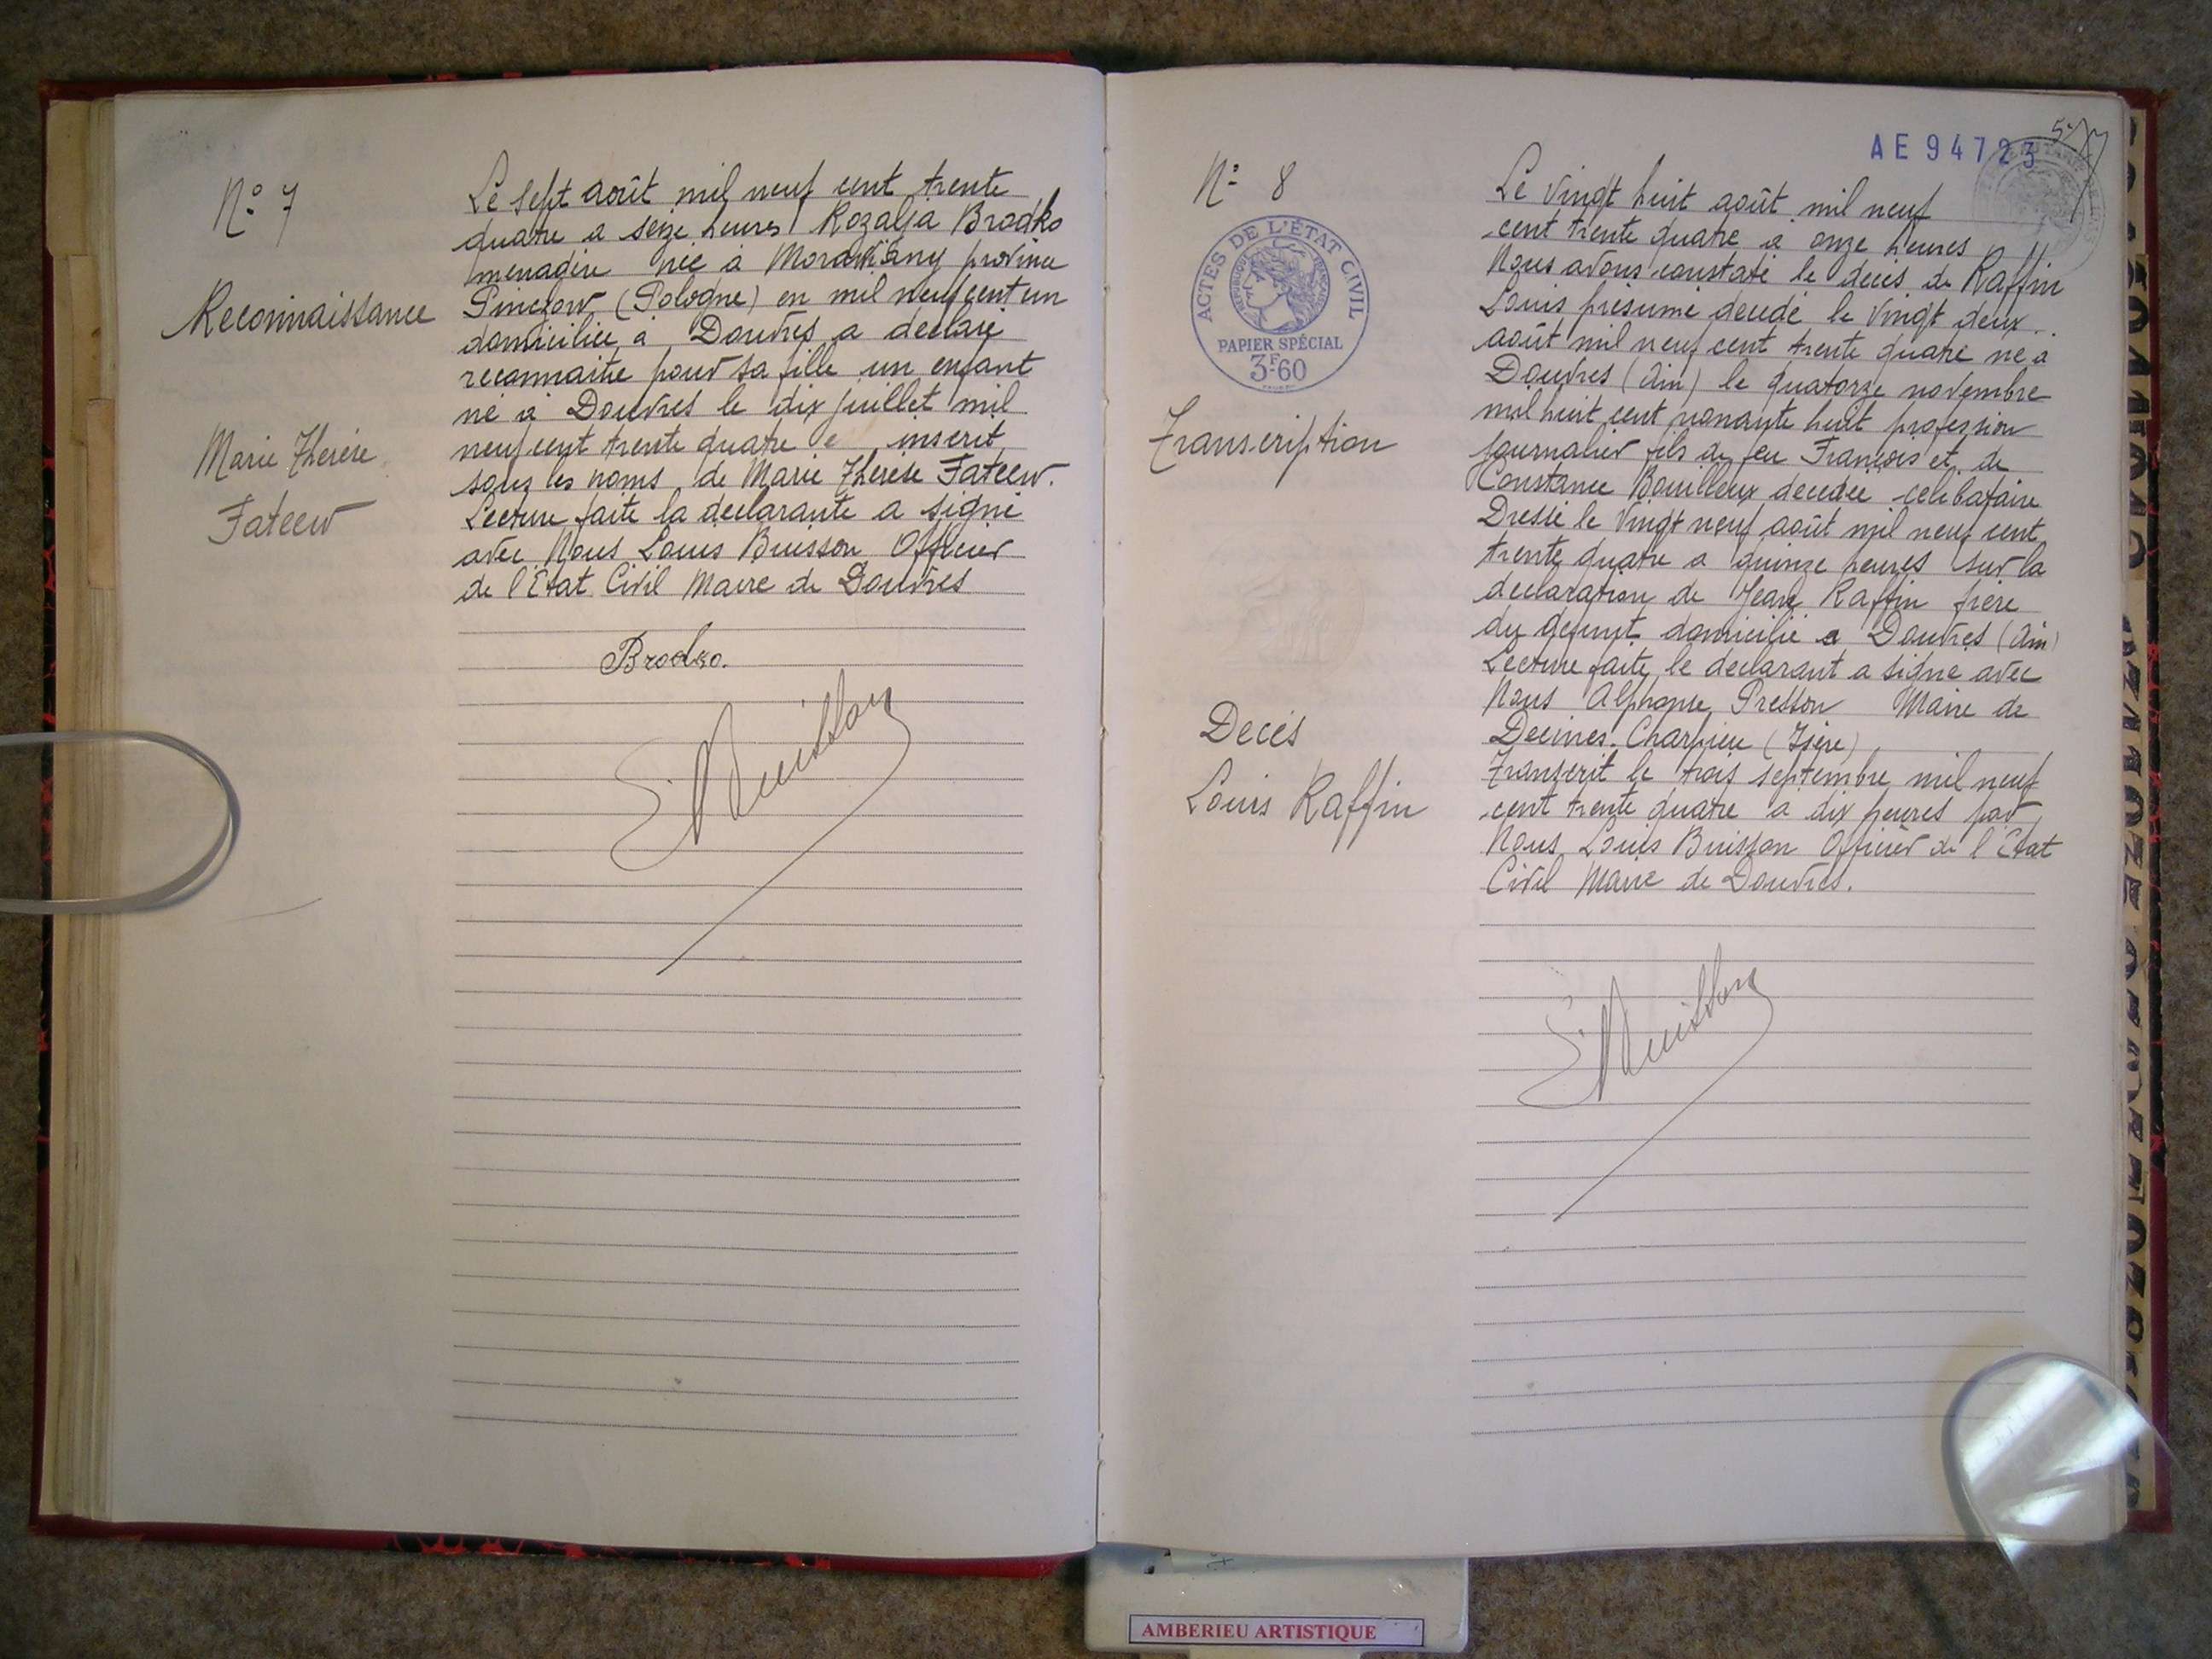 N° 7
Reconnaissance
Marie Thérèse
Fateew
Le sept août mil neuf cent trente
quatre a seize heures Rozalja Brodko
menagère née à Morawiany province
Pinczow (Pologne) en mil neuf cent un
domiciliée à Douvres a declaré
reconnaitre pour sa fille un enfant
né à Douvres le dix juillet mil
neuf cent trente quatre e inscrit
sous les noms de Marie Thérèse Fateew.
Lecture faite la declarante a signé
avec Nous Louis Buisson Officier
de l'Etat Civil Maire de Douvres
Brodko.
LBuisson
AE 94723
N° 8
ACTES DE L'ÉTAT CIVIL
RÉPUBLIQUE FRANÇAISE
PAPIER SPÉCIAL
3F60
Transcription
Decès
Louis Raffin
Le vingt huit août mil neuf
cent trente quatre a onze heures
Nous avons constaté le decès de Raffin
Louis présumé decedé le vingt deux
août mil neuf cent trente quatre né a
Douvres (Ain) le quatorze novembre
mil huit cent nonante huit profession
journalier fils de feu François et de
Constance Bouilloux decedée celibataire
Dressé le vingt neuf août mil neuf cent
trente quatre a quinze heures sur la
declaration de Jean Raffin frère
du defunt domicilié a Douvres (Ain)
Lecture faite le declarant a signé avec
Nous Alphonse Presson Maire de
Decines. Charpieu (Isère)
Transcrit le trois septembre mil neuf
cent trente quatre a dix heures par
Nous Louis Buisson Officier de l'Etat
Civil Maire de Douvres.
LBuisson
AMBERIEU ARTISTIQUE